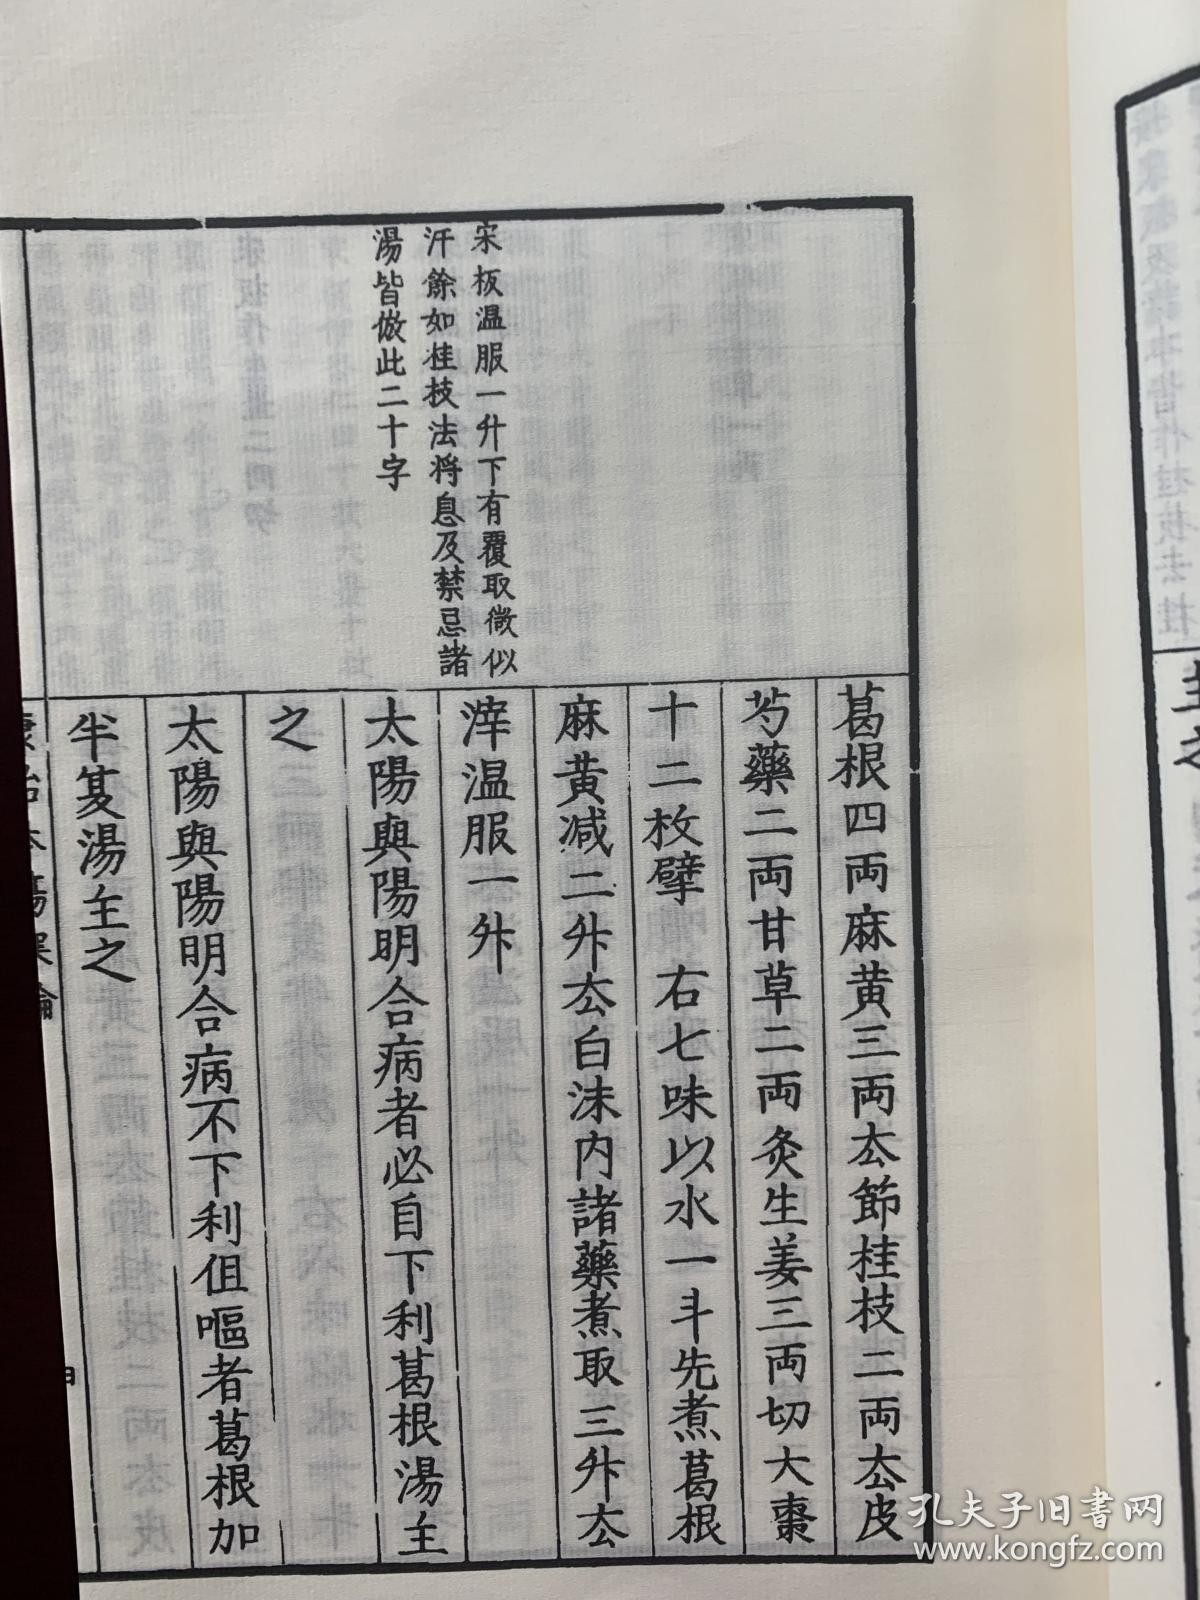 宋板温服一升下有覆取微似
汗餘如桂枝法将息及禁忌諸
湯皆倣此二十字
葛根四両麻黄三両厺節桂枝二両厺皮
芍藥二両甘草二両炙生姜三両切大棗
十二枚擘　右七味以水一斗先煮葛根
麻黄减二升厺白沫内諸藥煮取三升厺
滓温服一升
太陽與陽明合病者必自下利葛根湯主
之
太陽與陽明合病不下利但嘔者葛根加
半夏湯主之
孔夫子旧书网
www.kongfz.com